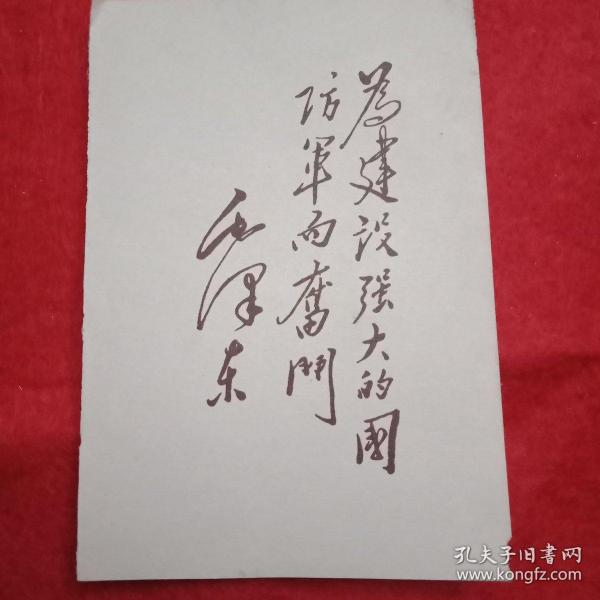 為建设强大的國
防军而奮鬥
毛泽东
孔夫子旧書网
www.kongfz.com